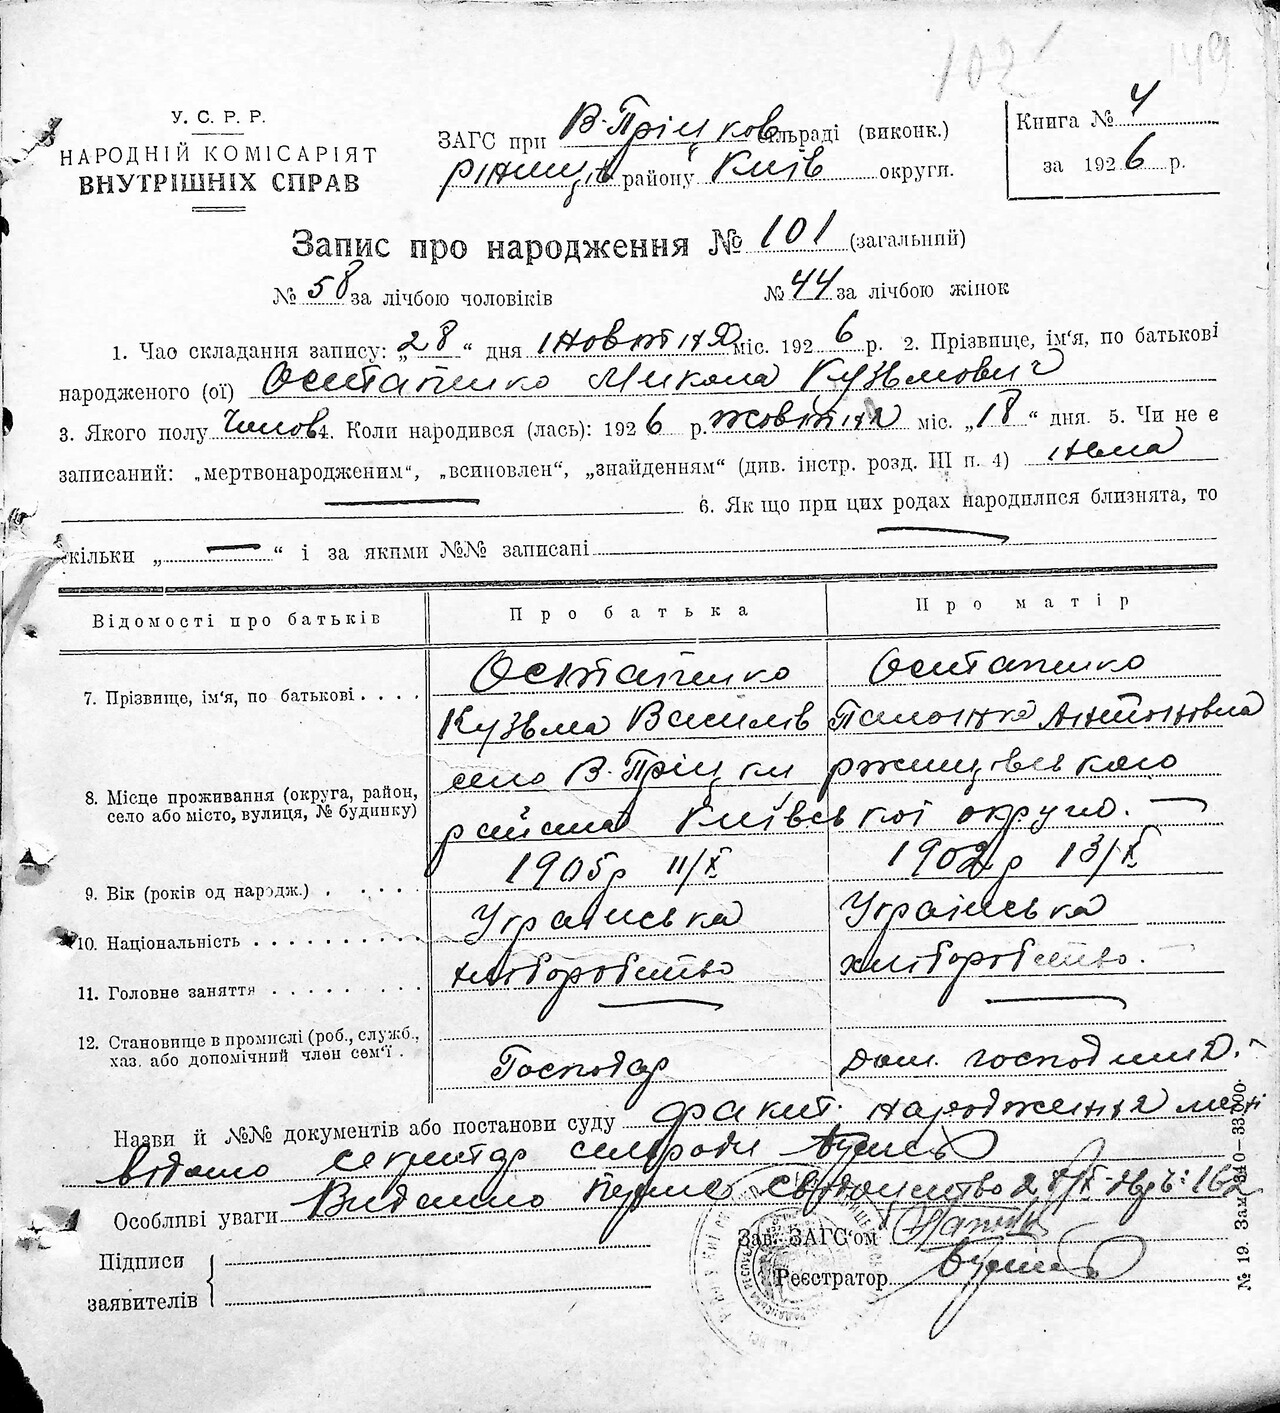 102 149
У. С. Р. Р.
НАРОДНІЙ КОМІСАРІЯТ
ВНУТРІШНІХ СПРАВ
ЗАГС при В-Пріцков сільраді (виконк.)
району Київ округи.
Книга № 4
за 1926 р.
Запис про народження № 101 (загальний)
№ 58 за лічбою чоловіків № 44 за лічбою жінок
1. Час складання запису: „28“ дня жовтня міс. 1926 р. 2. Прізвище, ім‘я, по батькові
народженого (ої) Остапенко Микола Кузьмович
3. Якого полу Чолов 4. Коли народився (лась): 1926 р. жовтня міс. „18“ дня. 5. Чи не є
записаний: „мертвонародженим“, „всиновлен“, „знайденням“ (див. інстр. розд. III п. 4) нема
6. Як що при цих родах народилися близнята, то
скільки „ — “ і за якими №№ записані
Відомості про батьків Про батька Про матір
7. Прізвище, ім‘я, по батькові . . . .
Остапенко Остапенко
Кузьма Василів Антоновна
8. Місце проживання (округа, район,
село або місто, вулиця, № будинку)
село В-Пріцки ржищівського
района Київської округи. —
9. Вік (років од народж.) . . . . .
1905р 11/X 1902р 13/X
10. Національність . . . . . . . . . .
Українська Українська
11. Головне заняття . . . . . . . . .
хліборобство хліборобство. —
12. Становище в промислі (роб., служб.,
хаз. або допомічний член сем‘ї .
Господар дом. господиня. —
Назви й №№ документів або постанови суду факт. народження мені
відомо секретар сілради
Особливі уваги Видано перше свідоцтво 28/X
Підписи
заявителів
Зав. ЗАГС‘ом
Реєстратор
№ 19. Зам.